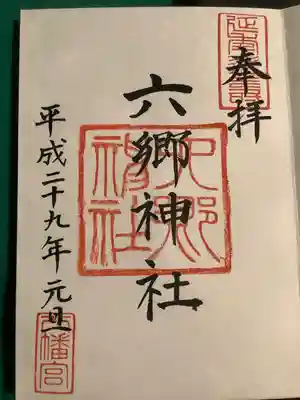 奉拝
六郷神社
平成二十九年 元旦
六郷神社
八幡宮